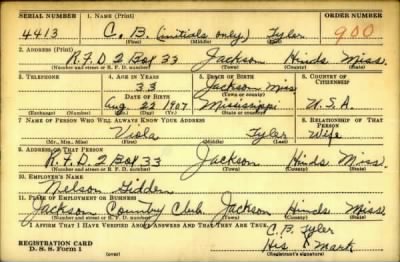 SERIAL NUMBER 1. NAME (Print) ORDER NUMBER
4413 C. B. (initials only) Tyler 900
(First) (Middle) (Last)
2. ADDRESS (Print)
R.F.D 2 Box 33 Jackson Hinds Miss.
(Number and street or R. F. D. number) (Town) (County) (State)
3. TELEPHONE 4. AGE IN YEARS 5. PLACE OF BIRTH 6. COUNTRY OF CITIZENSHIP
33 Jackson Miss
DATE OF BIRTH (Town or county)
Aug. 22 1907 Mississippi U.S.A.
(Exchange) (No.) (Mo.) (Day) (Yr.) (State or country)
7. NAME OF PERSON WHO WILL ALWAYS KNOW YOUR ADDRESS 8. RELATIONSHIP OF THAT PERSON
Viola Tyler Wife
(Mr., Mrs., Miss) (First) (Middle) (Last)
9. ADDRESS OF THAT PERSON
R.F.D. 2 Box 33 Jackson Hinds Miss.
(Number and street or R. F. D. number) (Town) (County) (State)
10. EMPLOYER'S NAME
Nelson Giddens
11. PLACE OF EMPLOYMENT OR BUSINESS
Jackson Country Club Jackson Hinds Miss
(Number and street or R. F. D. number) (Town) (County) (State)
I AFFIRM THAT I HAVE VERIFIED ABOVE ANSWERS AND THAT THEY ARE TRUE.
C.B. Tyler
REGISTRATION CARD His X Mark
D. S. S. Form 1 (over) (Registrant's signature)